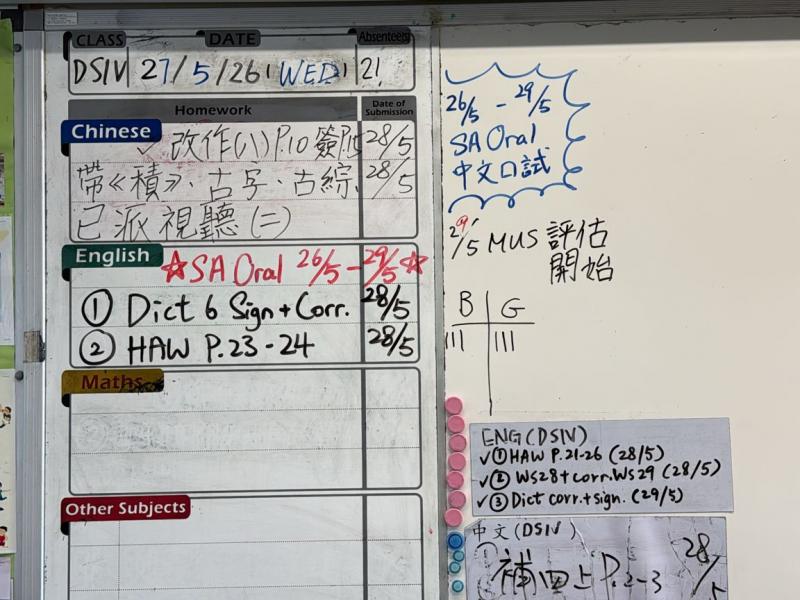 CLASS DATE Absentees
DSIV 27/5/26 (WED) 21
Homework Date of Submission
Chinese ✓ 改作(八) P.10 簽P.15 28/5
帶《積》、古字、古綜 28/5
已派視聽(二)
English ☆SA Oral 26/5 - 29/5☆
① Dict 6 Sign + Corr. 28/5
② HAW P.23-24 28/5
Maths
Other Subjects
26/5 - 29/5
SA Oral
中文口試
29/5 MUS 評估
開始
B G
||| |||
ENG (DSIV)
✓① HAW P.21-26 (28/5)
✓② WS28+corr.WS29 (28/5)
✓③ Dict corr.+sign. (29/5)
中文(DSIV)
補四上P.2-3 28/5